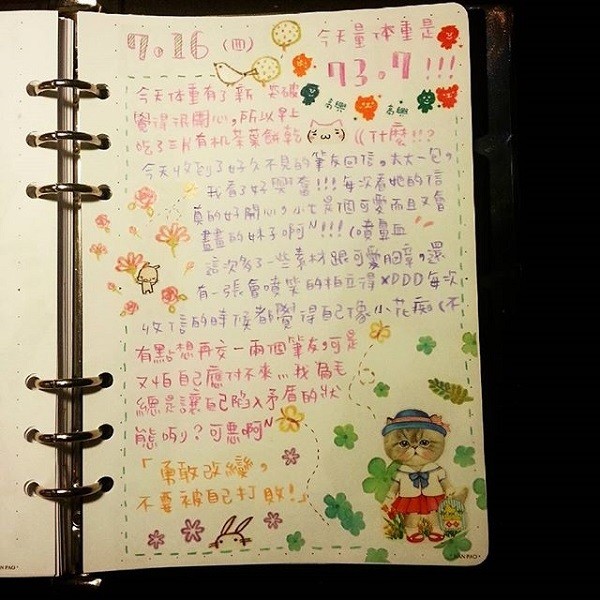 7.16 (四)
今天量体重是
73.7!!!
高興 高興
今天体重有了新突破
覺得很開心,所以早上
吃了三片有机茶葉餅乾 ((什麼!!?
今天收到了好久不見的筆友回信,太大一包,
我看了好興奮!!!每次看她的信
真的好開心,小七是個可愛而且又會
畫畫的妹子啊~!!!(噴鼻血
這次多了一些素材跟可愛胸章,還
有一張會噴笑的拍立得XDDD每次
收信的時候都覺得自己像小花痴(不
有點想再交一兩個筆友,可是
又怕自己應付不來...我為毛
總是讓自己陷入矛盾的狀
態咧)?可惡啊~
「勇敢改變,
不要被自己打敗!」